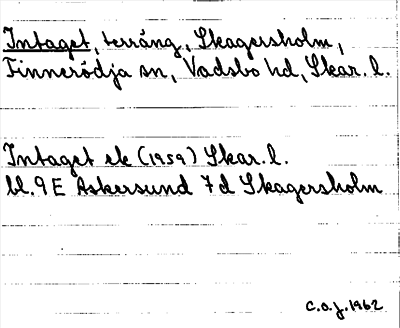 Intaget, terräng, Skagersholm,
Finnerödja sn, Vadsbo hd, Skar. l.
Intaget ek (1959) Skar. l.
bl. 9 E Askersund 7 d Skagersholm
C.a.j. 1962